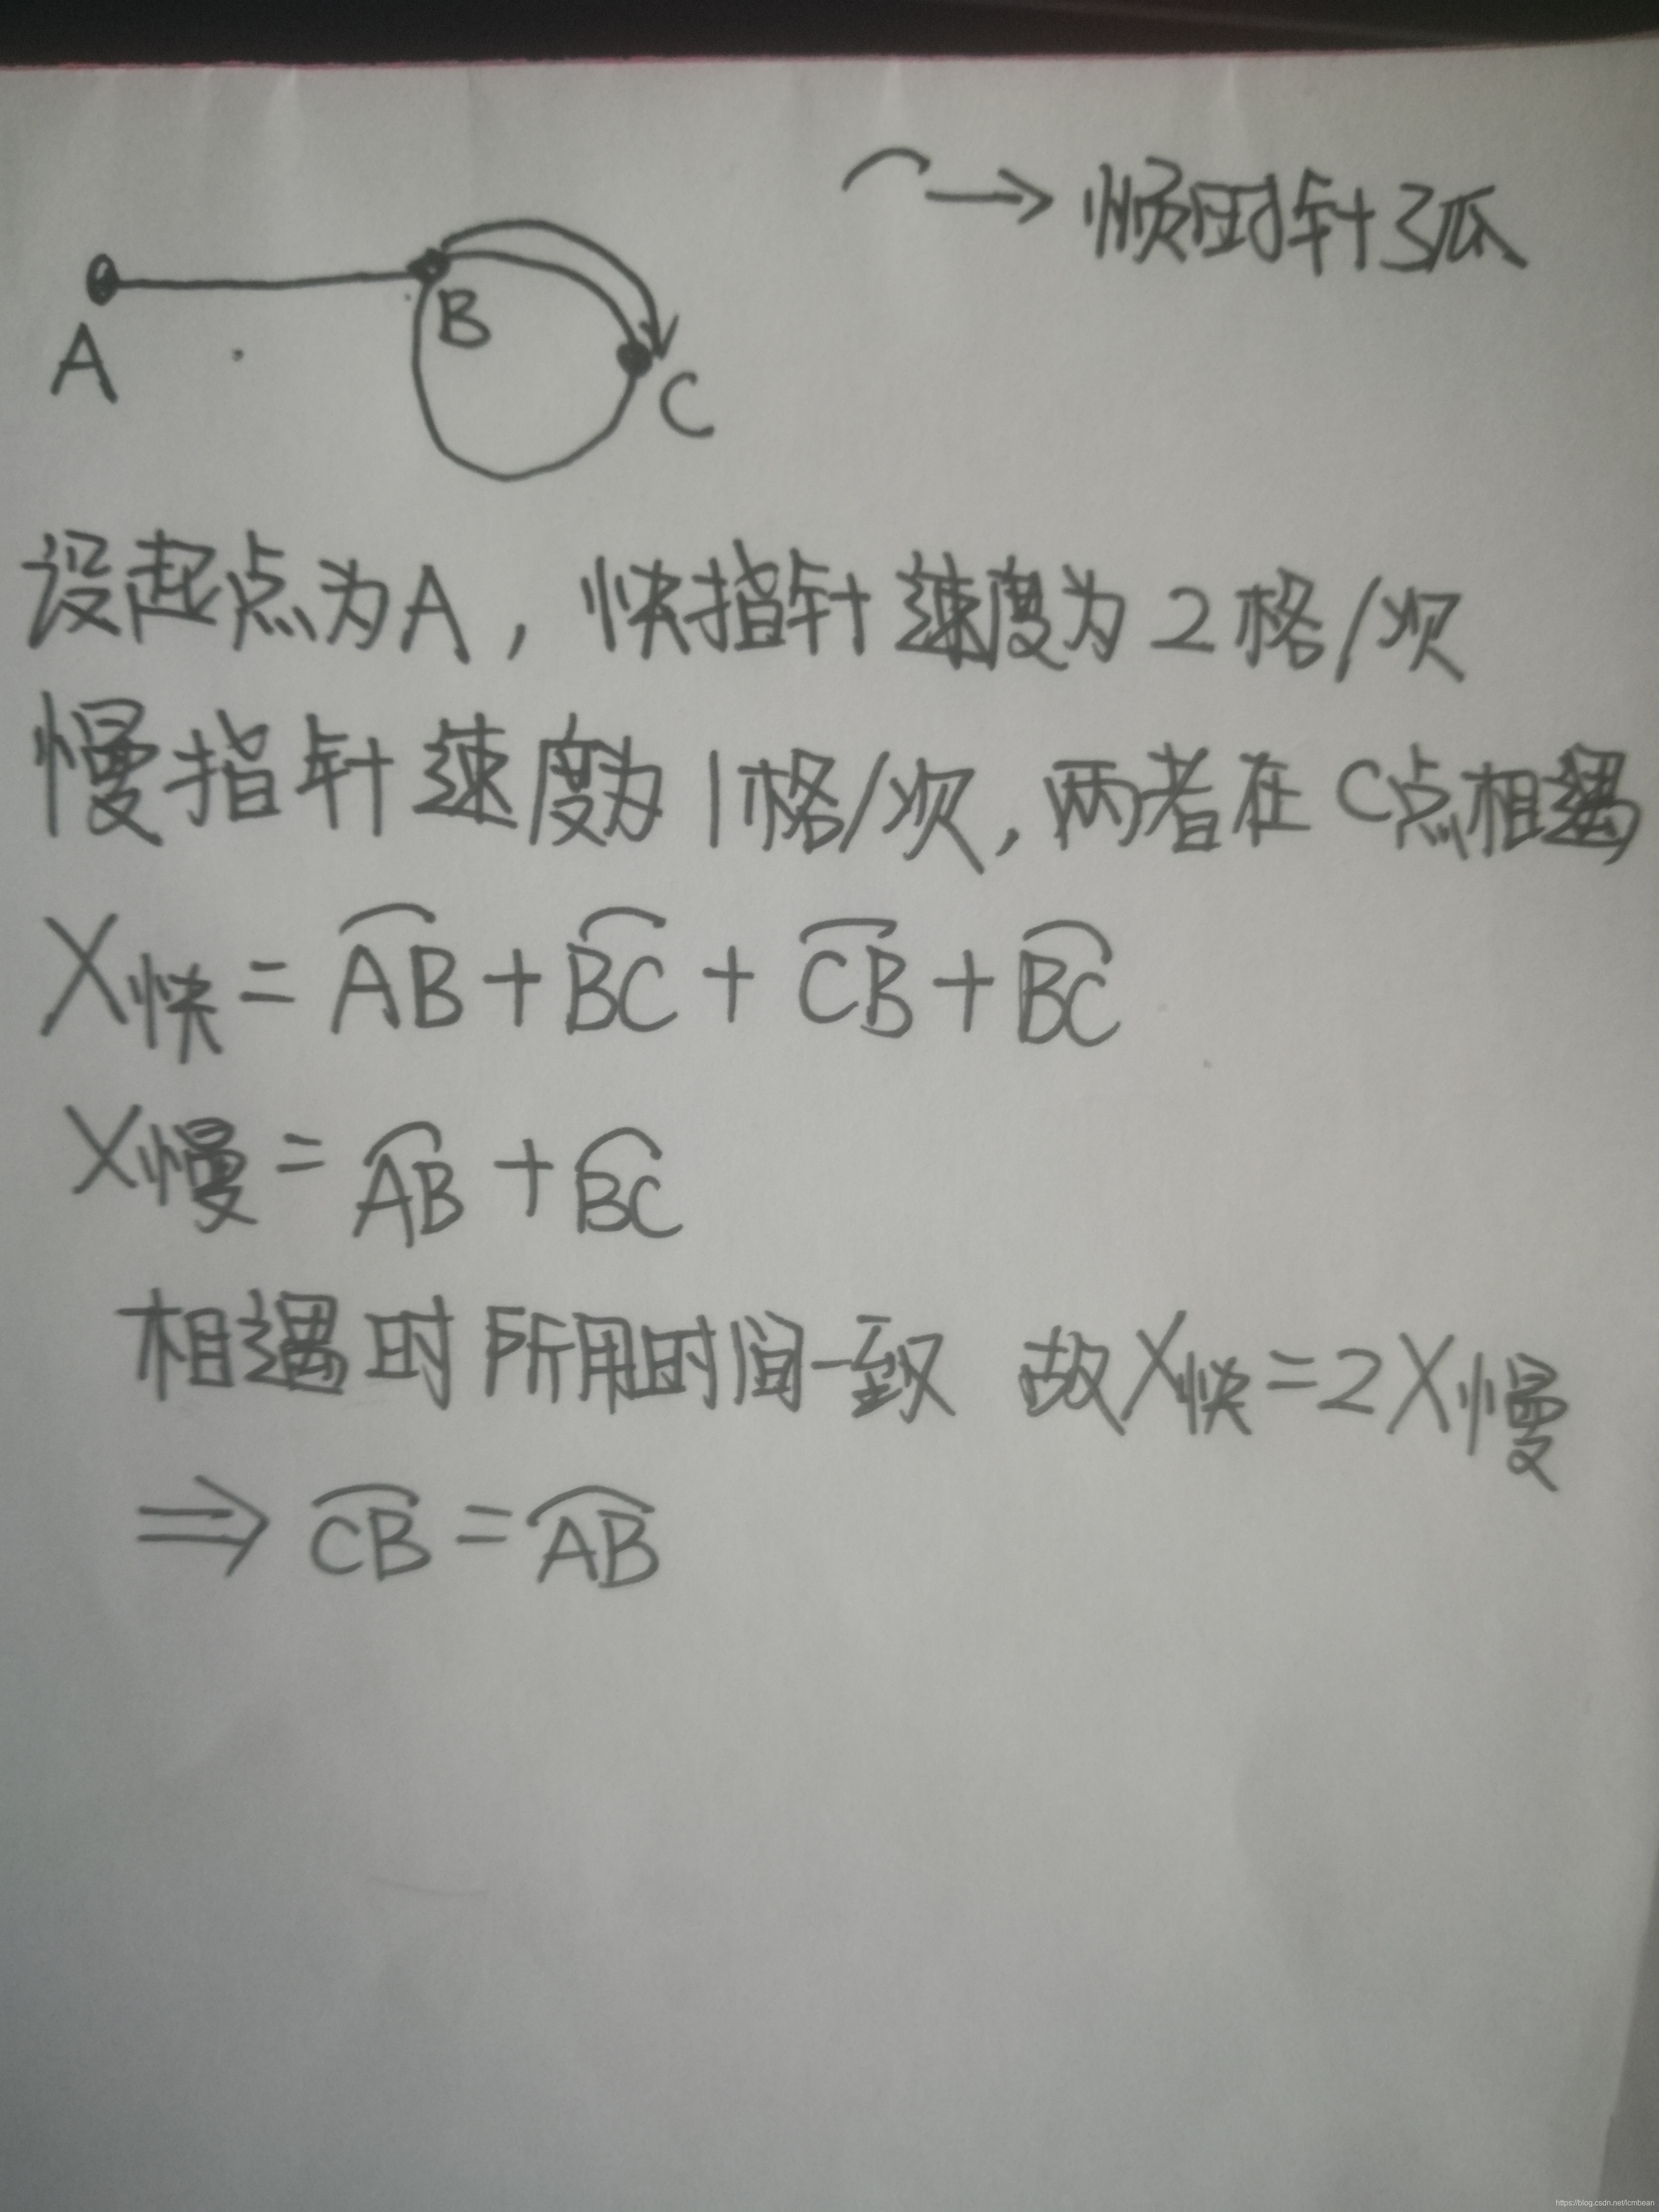 ⌒→顺时针弧
A
B
C
设起点为A，快指针速度为2格/次
慢指针速度为1格/次，两者在C点相遇
X快=A͡B+B͡C+C͡B+B͡C
X慢=A͡B+B͡C
相遇时所用时间一致 故X快=2X慢
⇒C͡B=A͡B
https://blog.csdn.net/lcmbean